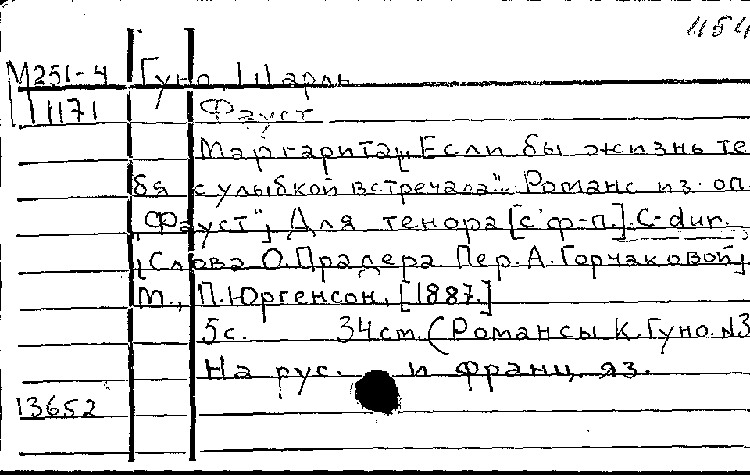 1154
М251-4 Гуно, Шарль
11171 Фауст
Маргарита „Если бы жизнь те
бя с улыбкой встречала". Романс из оп.
„Фауст", Для тенора [с ф-п.]. C-dur.
[Слова О. Прадера Пер. А. Горчаковой].
М., П. Юргенсон, [1887.]
5с. 34 cm. (Романсы К. Гуно. №3
На рус. и франц. яз.
13652